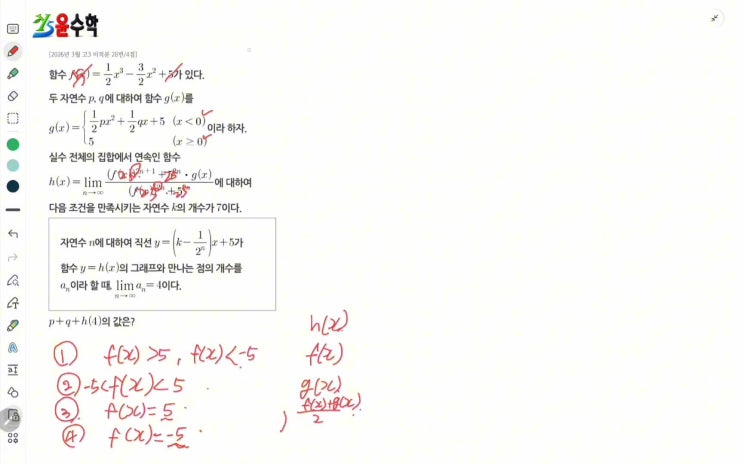 윤수학
[2026년 3월 고3 미적분 28번/4점]
함수 f(x)=1/2x³-3/2x²+5가 있다.
두 자연수 p, q에 대하여 함수 g(x)를
g(x)={ 1/2px²+1/2qx+5 (x<0)
5 (x≥0) 이라 하자.
실수 전체의 집합에서 연속인 함수
h(x)=lim n→∞ 에 대하여
다음 조건을 만족시키는 자연수 k의 개수가 7이다.
자연수 n에 대하여 직선 y=(k-1/2ⁿ)x+5가
함수 y=h(x)의 그래프와 만나는 점의 개수를
aₙ이라 할 때, lim n→∞ aₙ=4이다.
p+q+h(4)의 값은?
h(x)
① f(x)>5, f(x)<-5 f(x)
② -5<f(x)<5 g(x)
③ f(x)=5 (f(x)+g(x))/2
④ f(x)=-5